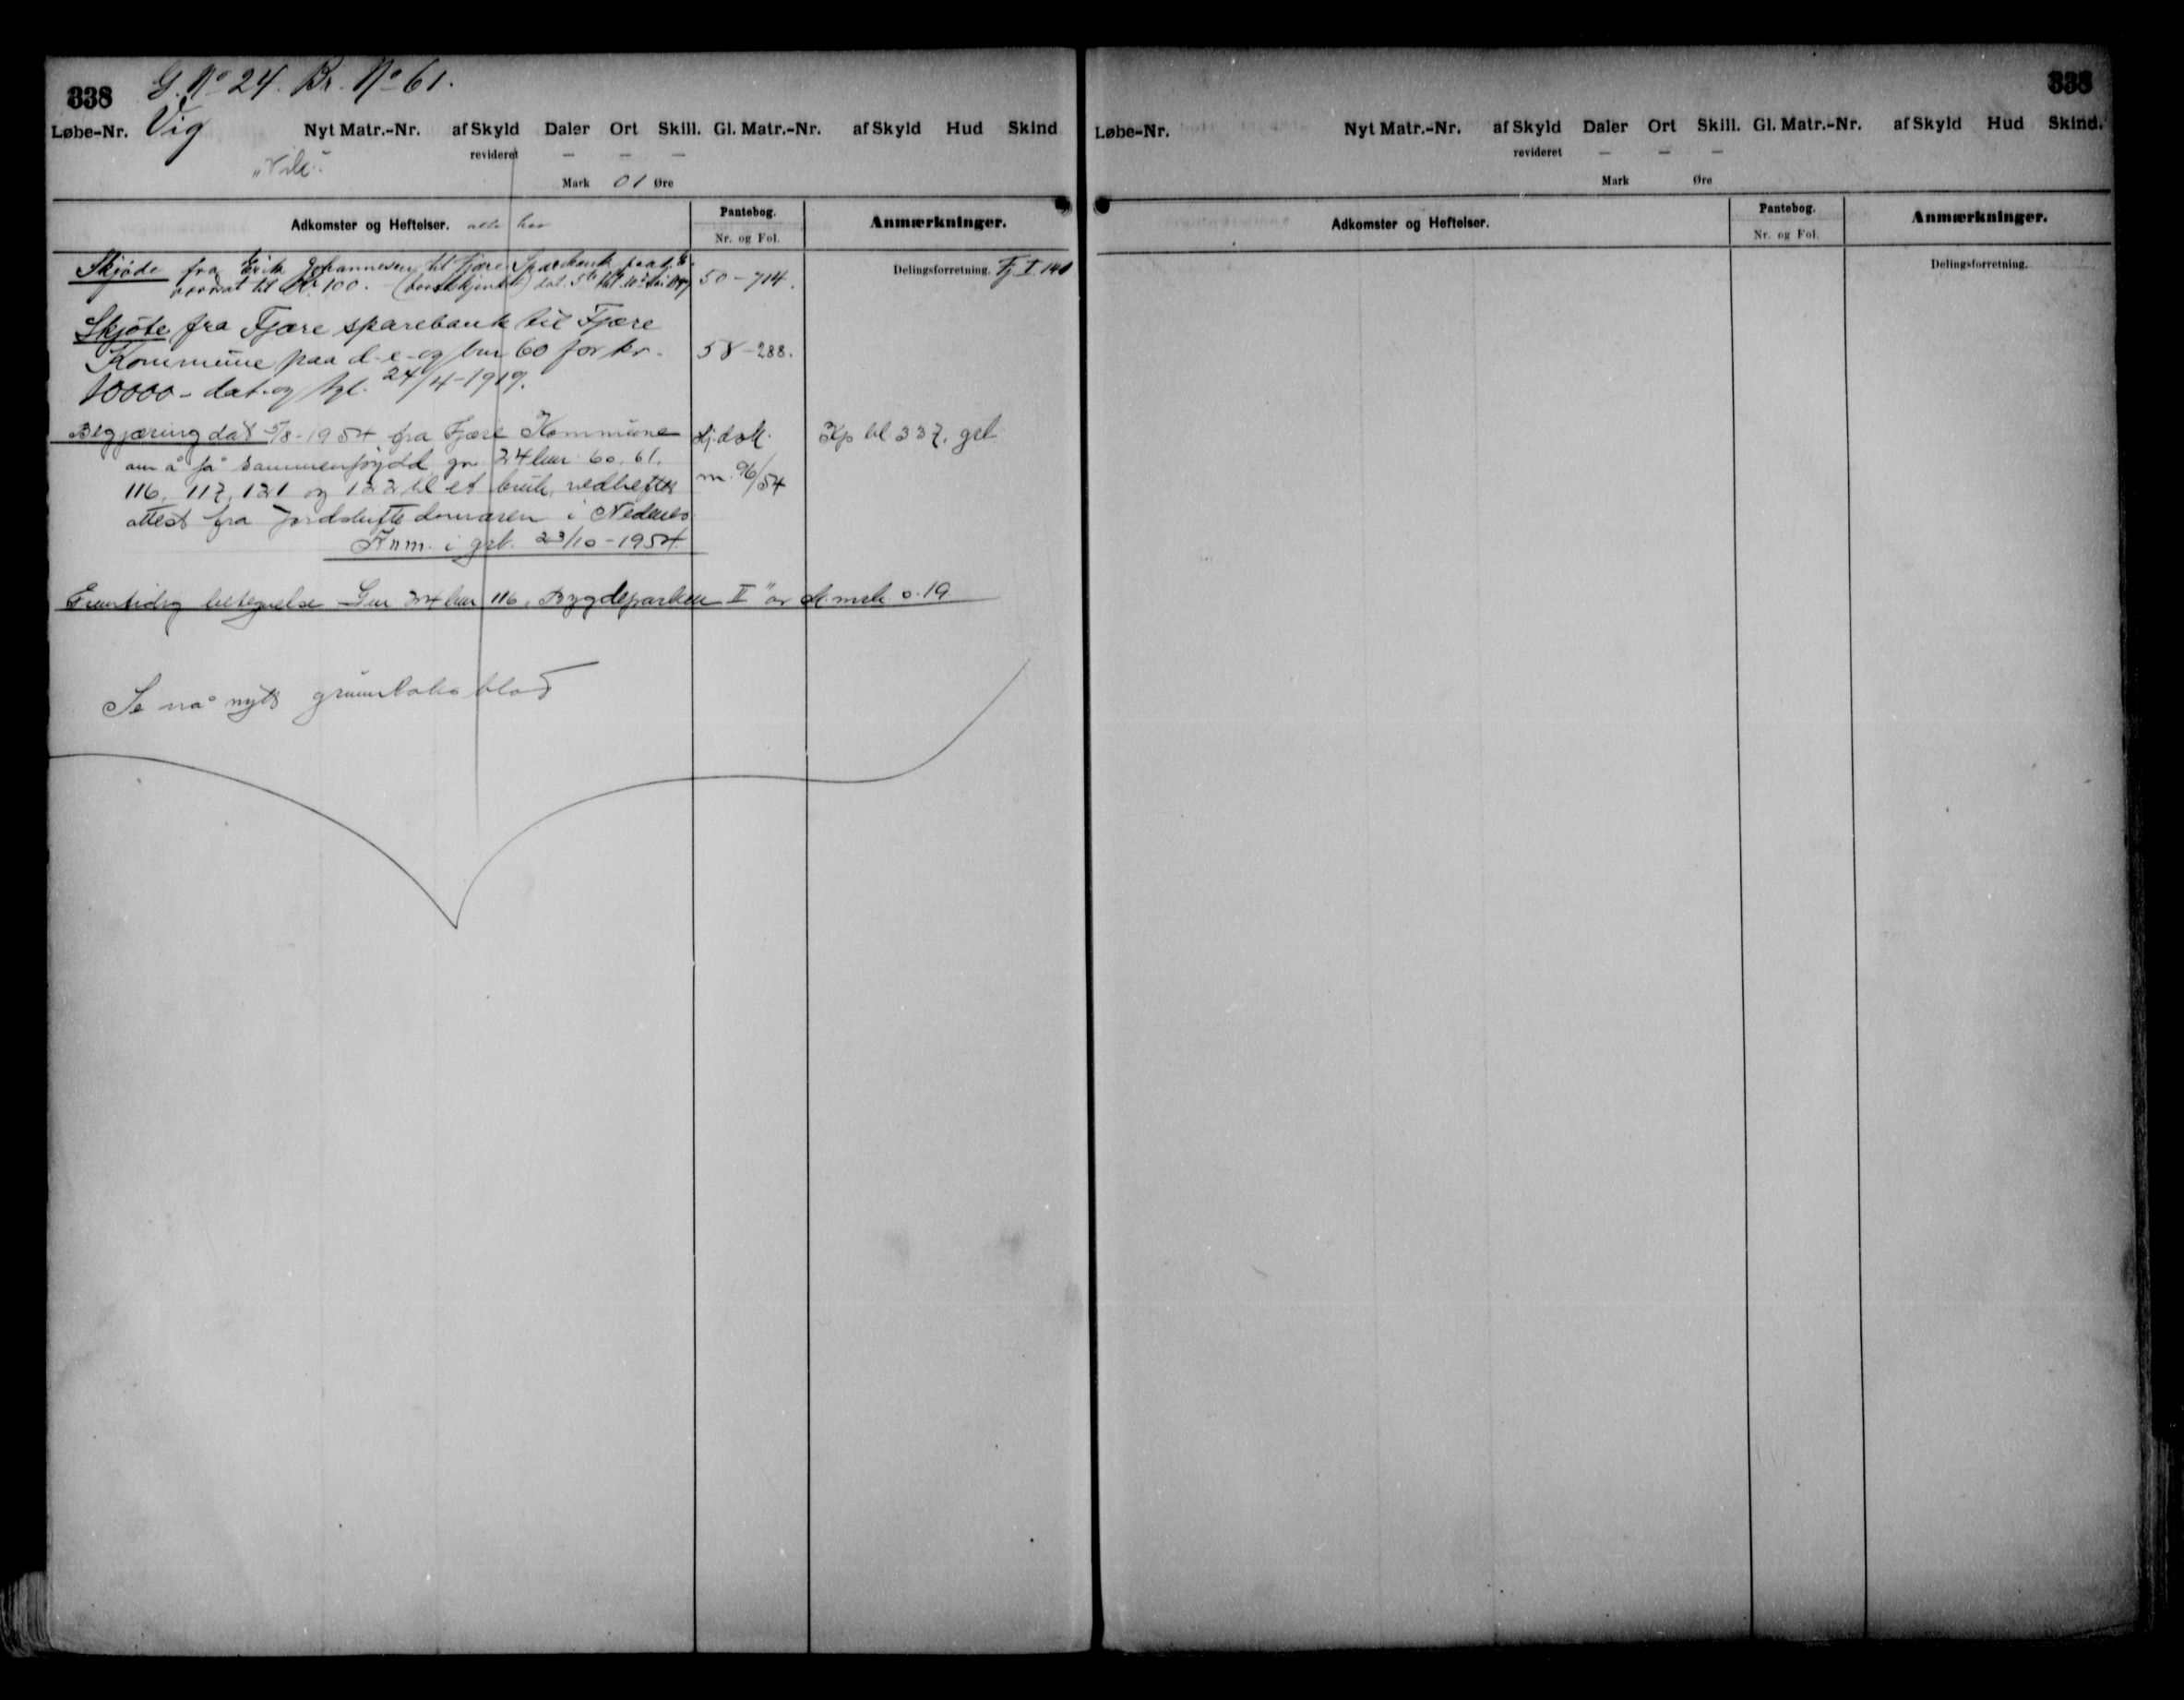 338
G. No 24. Br. No 61.
Løbe-Nr. Vig Nyt Matr.-Nr. af Skyld Daler Ort Skill. Gl. Matr.-Nr. af Skyld Hud Skind
revideret — — —
Mark 01 Øre
Adkomster og Heftelser.
Pantebog.
Nr. og Fol.
Anmærkninger.
Delingsforretning. Fj. I 140
Skjøde fra Erik Johannesen til Fjære Sparebank paa d. b.
til Kr. 100. 50-714.
Skjøte fra Fjære sparebank til Fjære
Kommune paa d-e- og bnr 60 for kr. 58-288.
10000- dat. og tgl. 24/4-1919.
Begjæring dat 5/8-1954 fra Fjære Kommune
om å få sammenføydd gnr 24 bnr 60, 61,
116, 117, 121 og 122 til et bruk, vedheftet m. 96/54
attest fra Jordskiftedomaren i Nedenes
Anm. i grb. 23/10-1954.
Fremtidig betegnelse Gnr 24 bnr 116 „Bygdeparken II" av sk. mrk 0.19
Se nå nytt grunnboksblad
338
Løbe-Nr. Nyt Matr.-Nr. af Skyld Daler Ort Skill. Gl. Matr.-Nr. af Skyld Hud Skind.
revideret — — —
Mark Øre
Adkomster og Heftelser.
Pantebog.
Nr. og Fol.
Anmærkninger.
Delingsforretning.